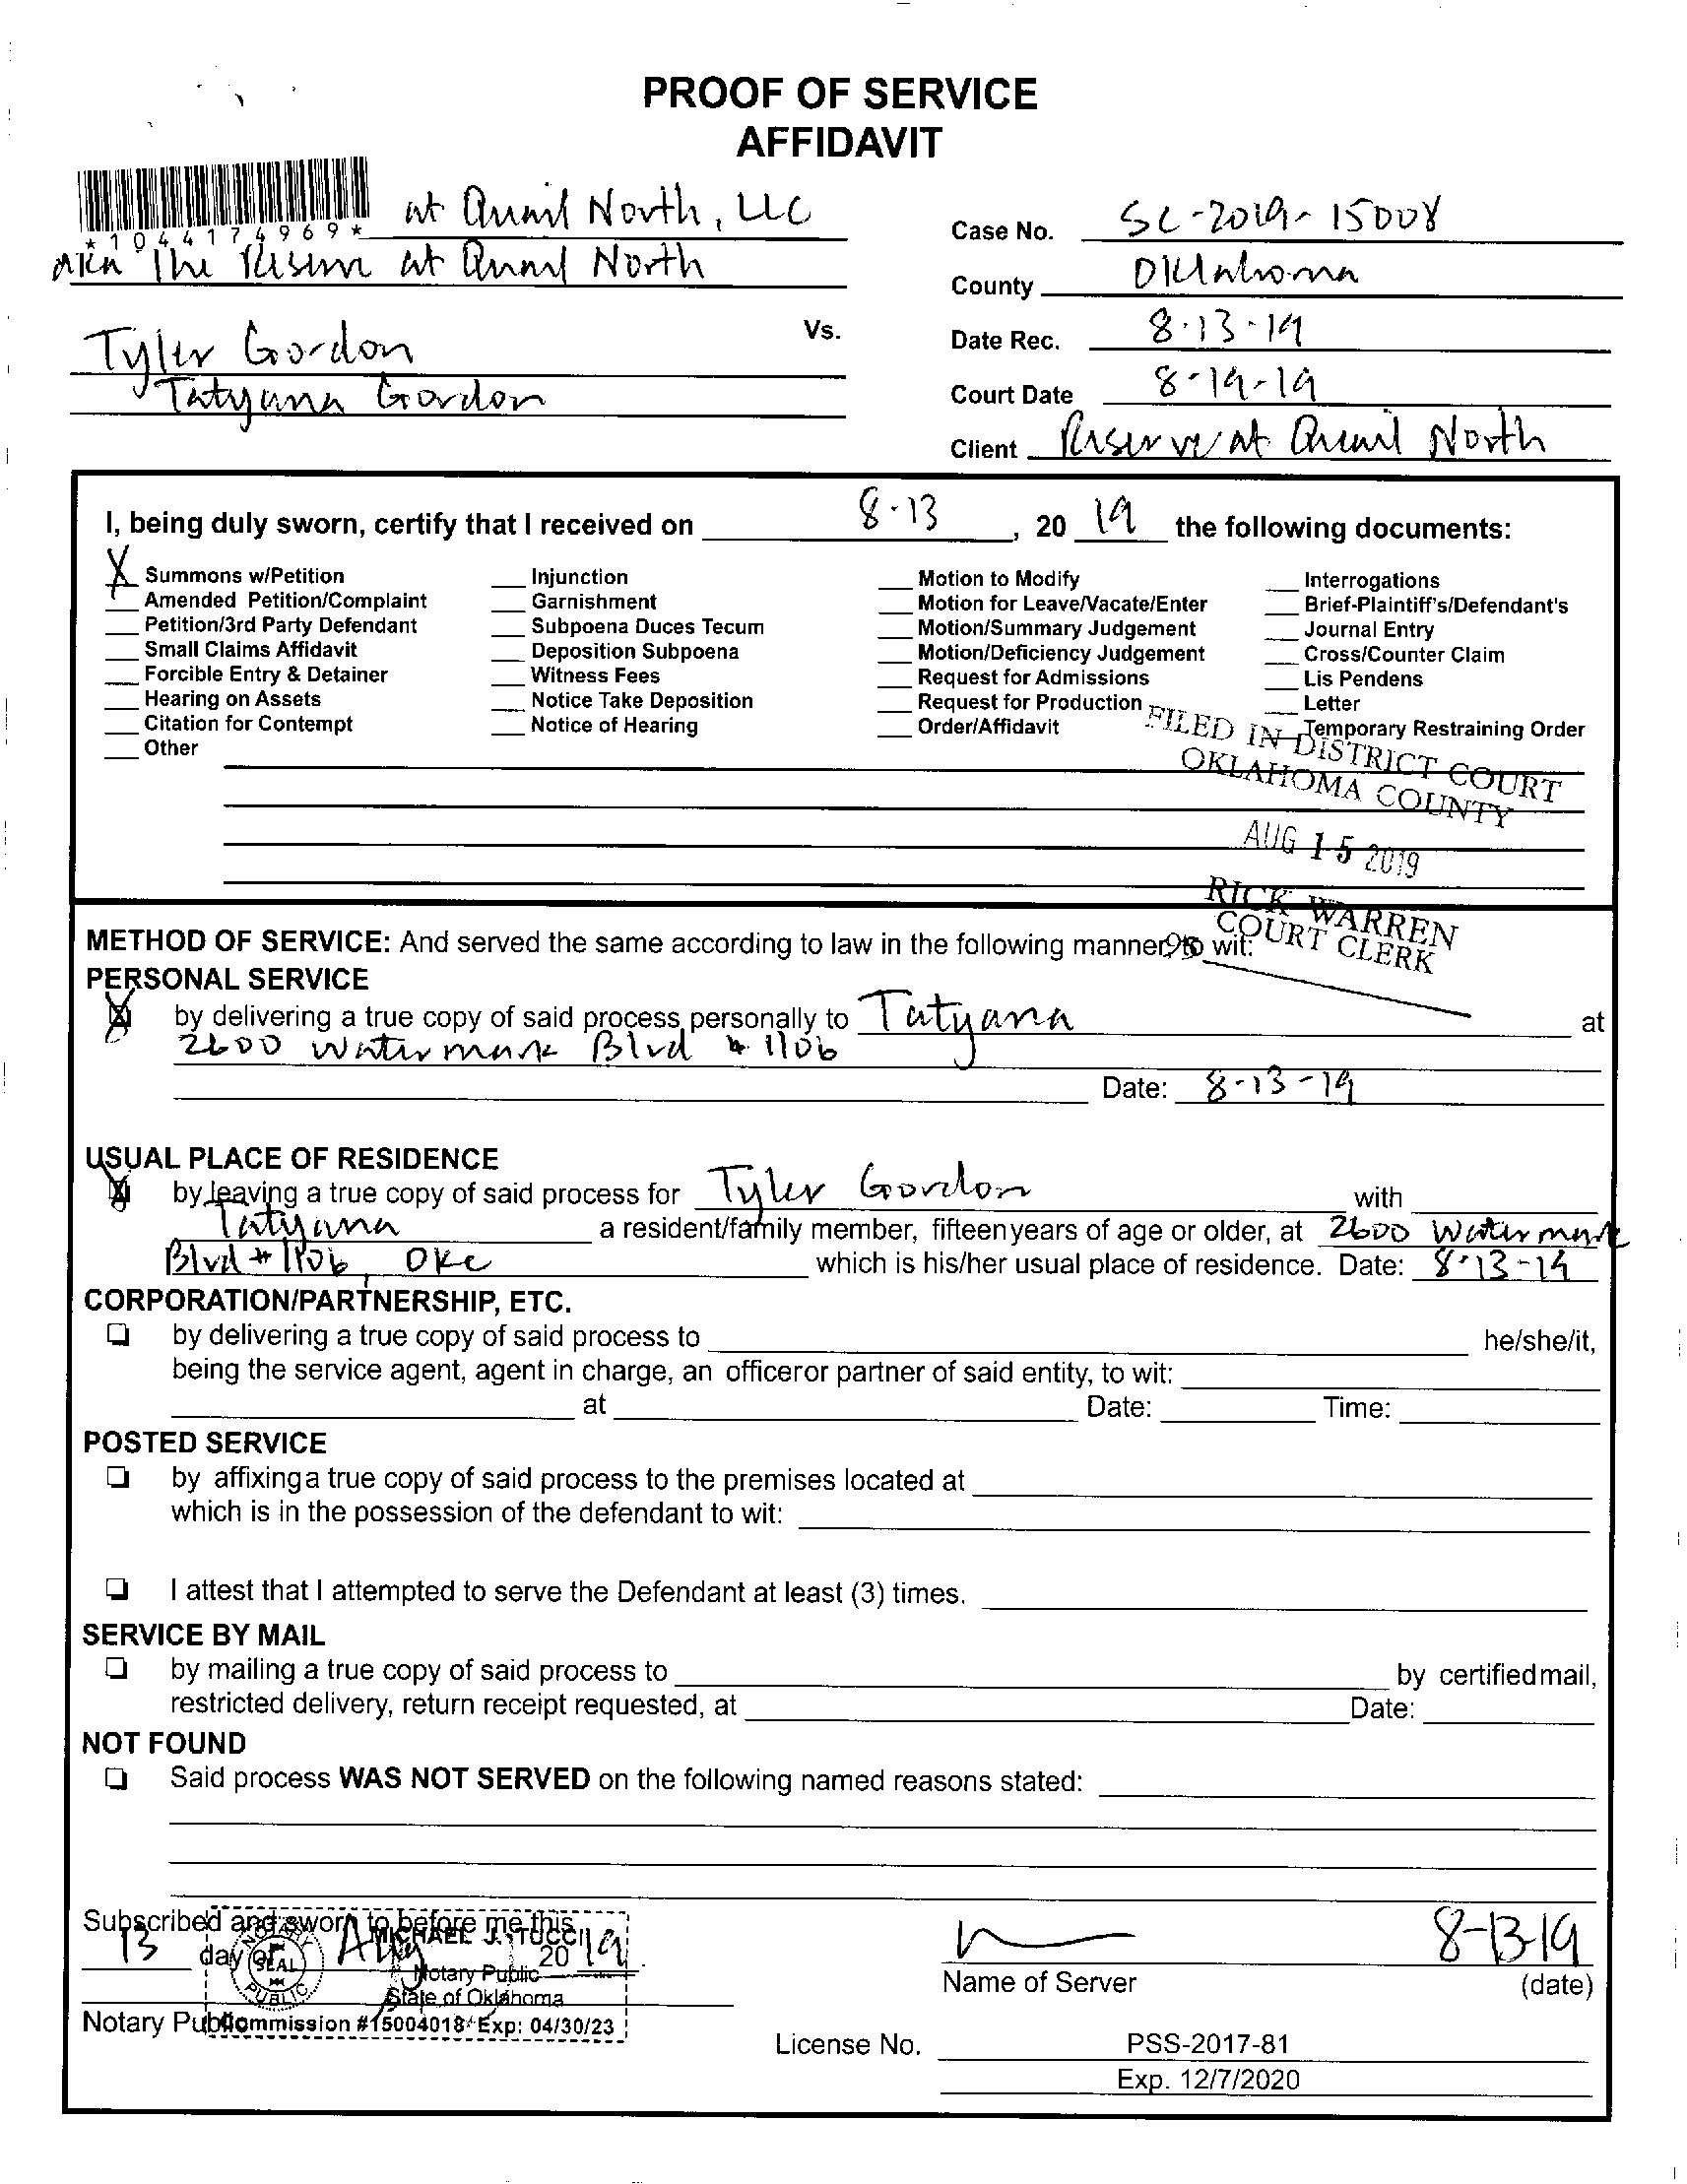 PROOF OF SERVICE
AFFIDAVIT
*1044174969* at Quail North, LLC
aka The Reserve at Quail North
Vs.
Tyler Gordon
Tatyana Gordon
Case No. SC-2019-15008
County Oklahoma
Date Rec. 8-13-19
Court Date 8-19-19
Client Reserve at Quail North
I, being duly sworn, certify that I received on 8-13, 20 19 the following documents:
X Summons w/Petition
Amended Petition/Complaint
Petition/3rd Party Defendant
Small Claims Affidavit
Forcible Entry & Detainer
Hearing on Assets
Citation for Contempt
Other
Injunction
Garnishment
Subpoena Duces Tecum
Deposition Subpoena
Witness Fees
Notice Take Deposition
Notice of Hearing
Motion to Modify
Motion for Leave/Vacate/Enter
Motion/Summary Judgement
Motion/Deficiency Judgement
Request for Admissions
Request for Production
Order/Affidavit
Interrogations
Brief-Plaintiff's/Defendant's
Journal Entry
Cross/Counter Claim
Lis Pendens
Letter
Temporary Restraining Order
FILED IN DISTRICT COURT
OKLAHOMA COUNTY
AUG 15 2019
RICK WARREN
COURT CLERK
METHOD OF SERVICE: And served the same according to law in the following manner, to wit:
PERSONAL SERVICE
X by delivering a true copy of said process personally to Tatyana at
2600 Watermark Blvd # 1106
Date: 8-13-19
USUAL PLACE OF RESIDENCE
X by leaving a true copy of said process for Tyler Gordon with
Tatyana a resident/family member, fifteenyears of age or older, at 2600 Watermark
Blvd # 1106, OKC which is his/her usual place of residence. Date: 8-13-19
CORPORATION/PARTNERSHIP, ETC.
by delivering a true copy of said process to he/she/it,
being the service agent, agent in charge, an officeror partner of said entity, to wit:
at Date: Time:
POSTED SERVICE
by affixing a true copy of said process to the premises located at
which is in the possession of the defendant to wit:
I attest that I attempted to serve the Defendant at least (3) times.
SERVICE BY MAIL
by mailing a true copy of said process to by certified mail,
restricted delivery, return receipt requested, at Date:
NOT FOUND
Said process WAS NOT SERVED on the following named reasons stated:
Subscribed and sworn to before me this
13 day of Aug 20 19
Notary Public
NOTARY PUBLIC SEAL
MICHAEL J. TUCCI
Notary Public
State of Oklahoma
Commission #15004018 Exp: 04/30/23
8-13-19
Name of Server (date)
License No. PSS-2017-81
Exp. 12/7/2020